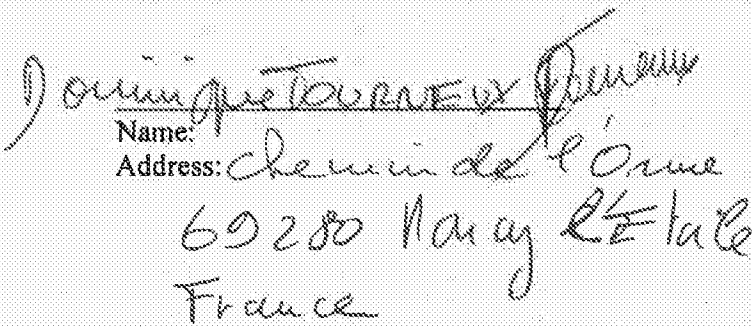 Dominique TOURNEUX
Name:
Address: Chemin de l'Orme
69280 Marcy L'Etoile
France